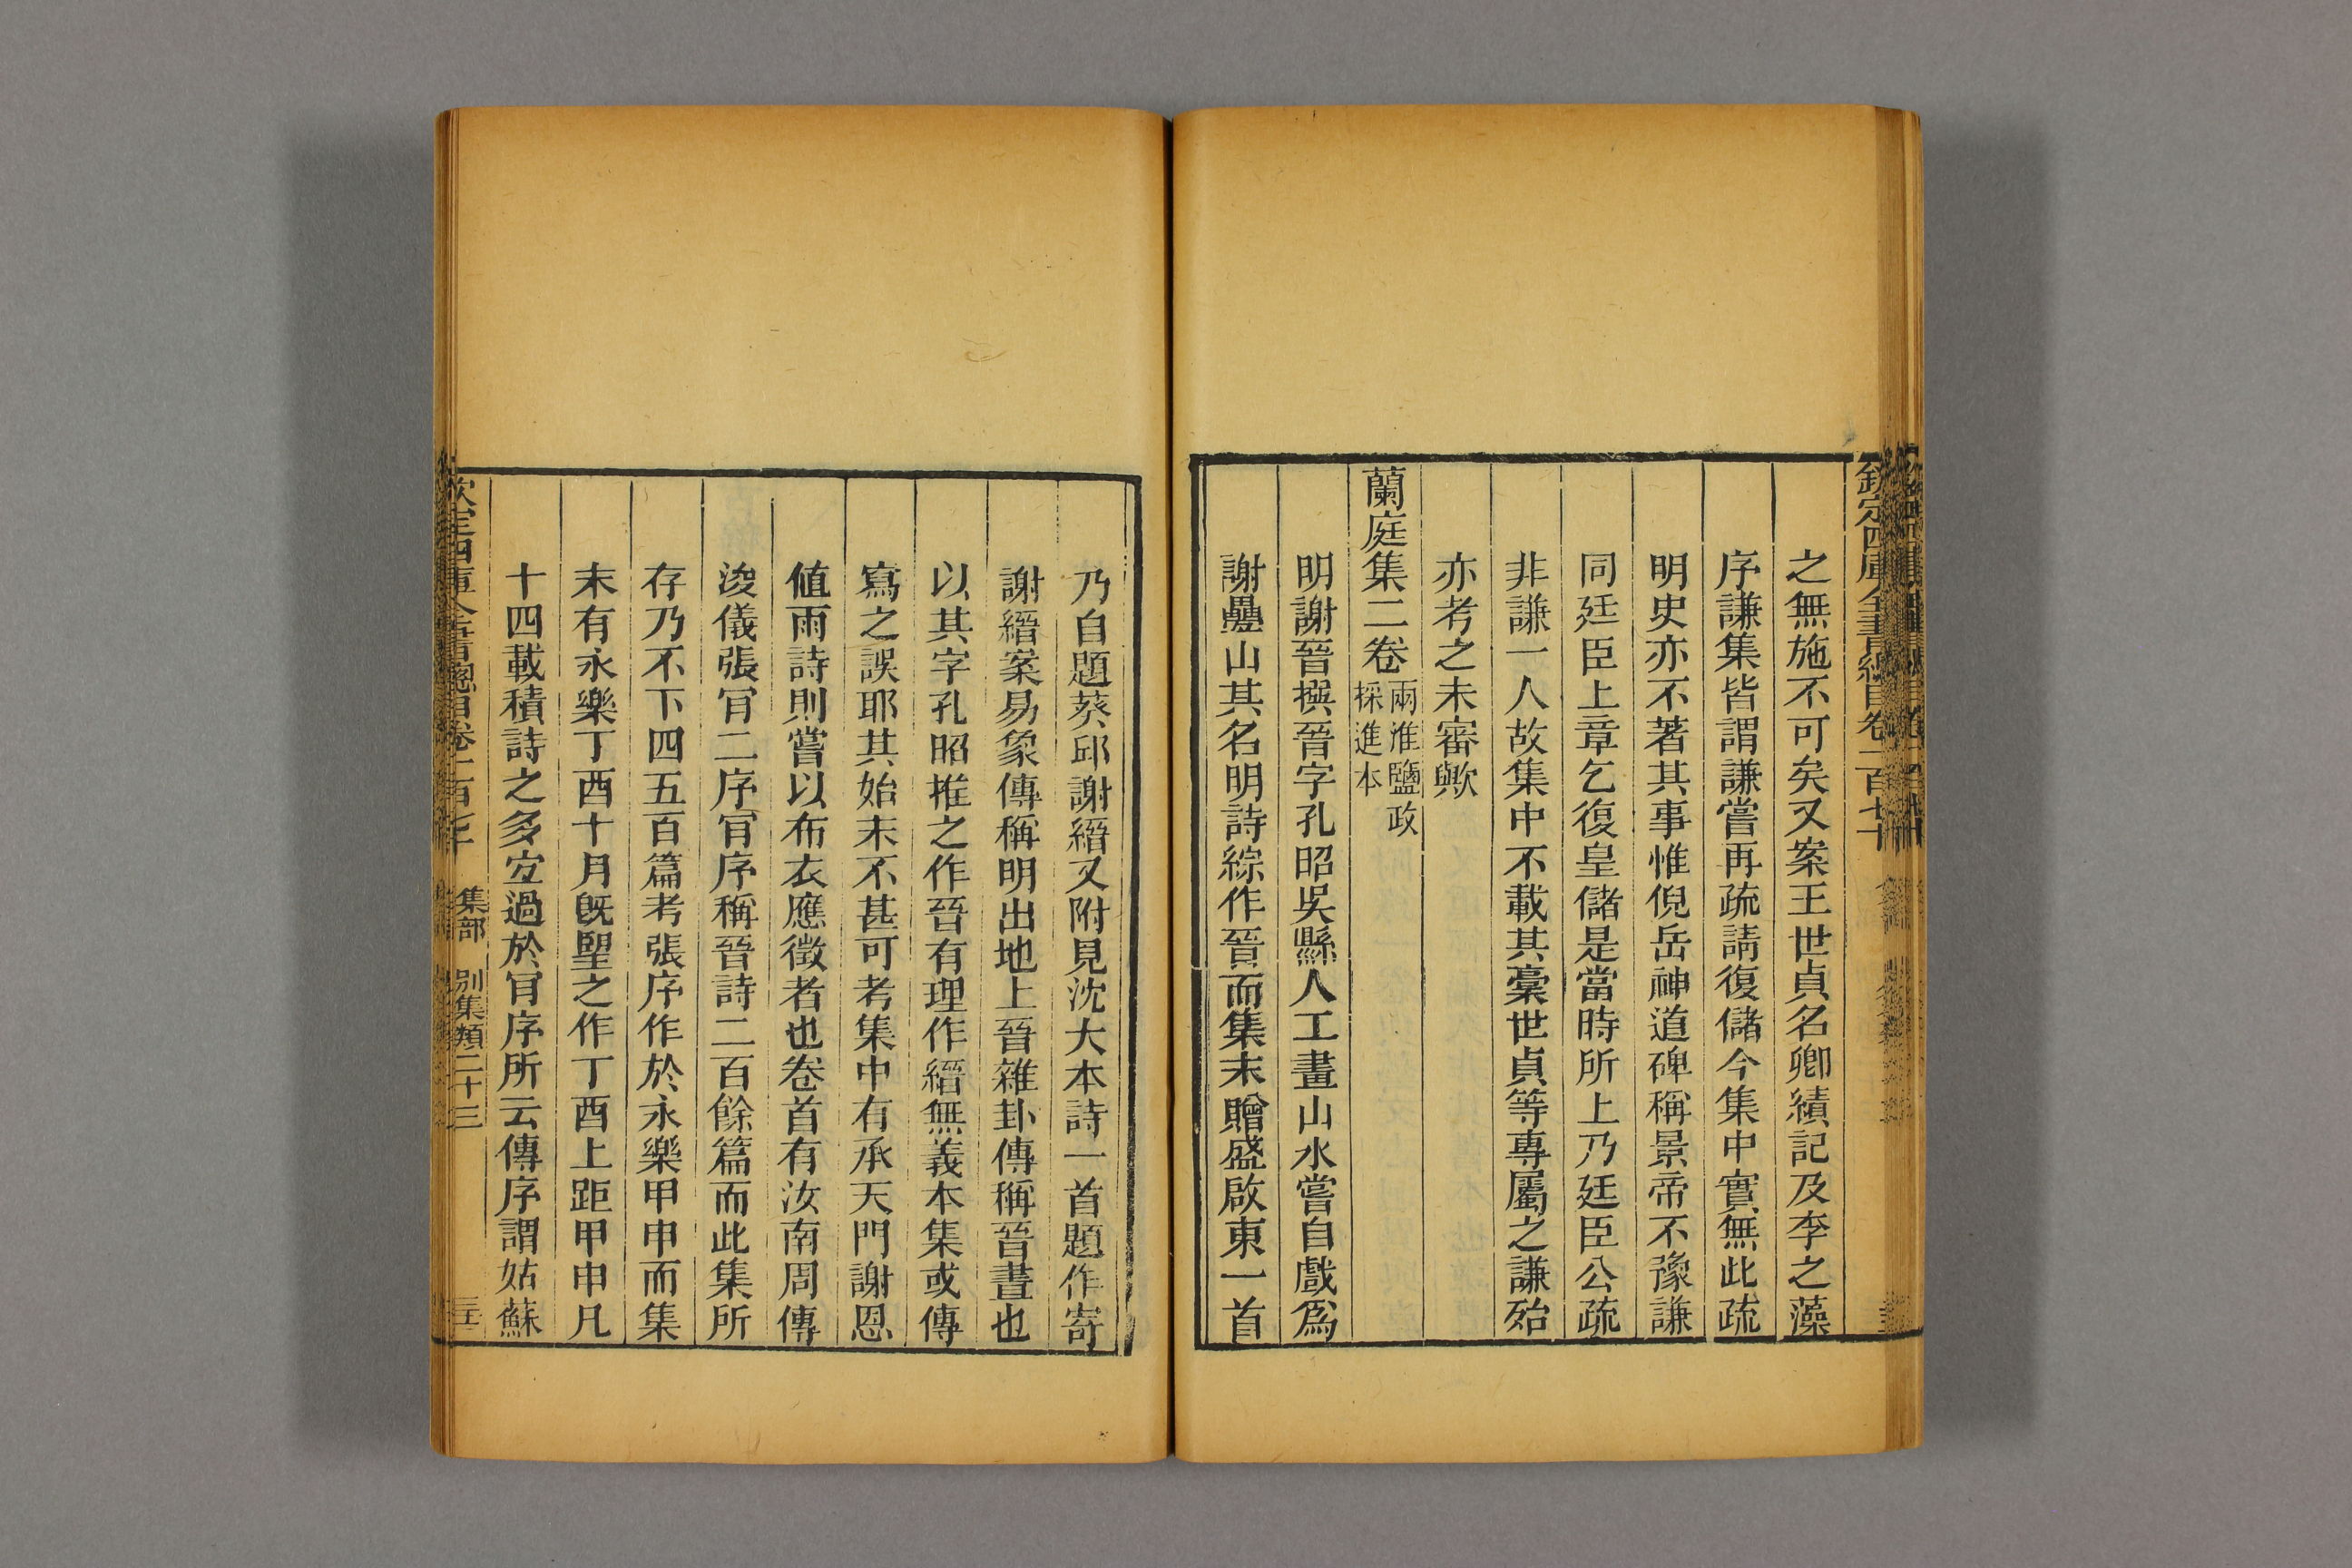 之無施不可矣又案王世貞名卿績記及李之藻
序謙集皆謂謙嘗再疏請復儲今集中實無此疏
明史亦不著其事惟倪岳神道碑稱景帝不豫謙
同廷臣上章乞復皇儲是當時所上乃廷臣公疏
非謙一人故集中不載其稾世貞等專屬之謙殆
亦考之未審歟
蘭庭集二卷兩淮鹽政採進本
明謝晉撰晉字孔昭吳縣人工畫山水嘗自戲爲
謝疊山其名明詩綜作晉而集末贈盛啟東一首
乃自題葵邱謝縉又附見沈大本詩一首題作寄
謝縉案易象傳稱明出地上晉雜卦傳稱晉晝也
以其字孔昭推之作晉有理作縉無義本集或傳
寫之誤耶其始末不甚可考集中有承天門謝恩
値雨詩則嘗以布衣應徵者也卷首有汝南周傳
浚儀張肎二序肎序稱晉詩二百餘篇而此集所
存乃不下四五百篇考張序作於永樂甲申而集
末有永樂丁酉十月旣朢之作丁酉上距甲申凡
十四載積詩之多宐過於肎序所云傳序謂姑蘇
集部 別集類二十三